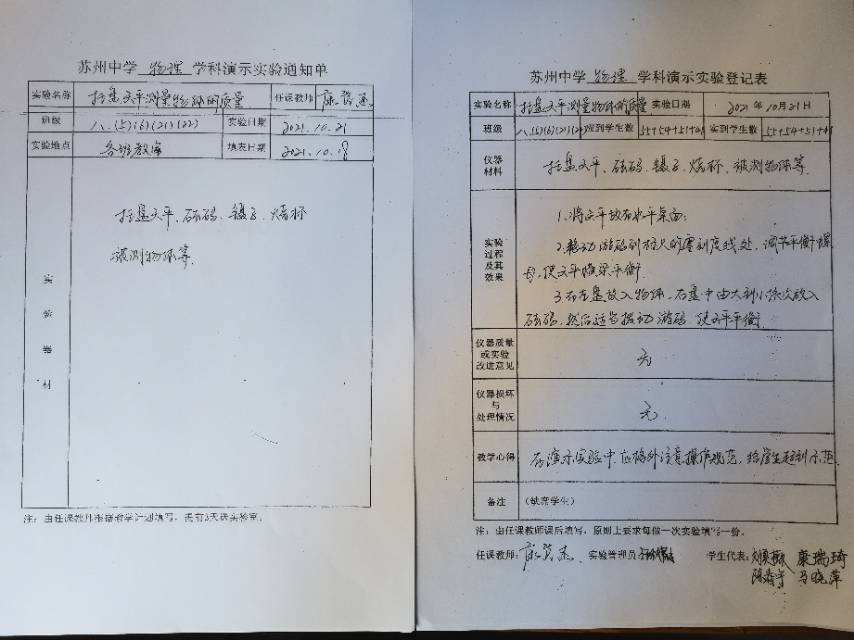 苏州中学 物理 学科演示实验通知单
实验名称 托盘天平测量物体的质量 任课教师
班级 八.(5)(6)(21)(22) 实验日期 2021.10.21
实验地点 各班教室 填表日期 2021.10.18
实验器材
托盘天平、砝码、镊子、烧杯
被测物体等.
注：由任课教师根据教学计划填写，提前3天送实验室。
苏州中学 物理 学科演示实验登记表
实验名称 托盘天平测量物体的质量 实验日期 2021年10月21日
班级 八.(5)(6)(21)(22) 应到学生数 55+54+51+ 实到学生数 55+54+51+
仪器材料 托盘天平、砝码、镊子、烧杯、被测物体等.
实验过程及其效果
1.将天平放在水平桌面;
2.移动游码到标尺的零刻度线处，调节平衡螺
母，使天平横梁平衡.
3.在左盘放入物体，右盘中由大到小依次放入
砝码，然后适当拨动游码，使天平平衡.
仪器质量或实验改进意见 无
仪器损坏与处理情况 无.
教学心得 在演示实验中，应格外注意操作规范，给学生起到示范.
备注 (缺席学生)
注：由任课教师课后填写，原则上要求每做一次实验填写一份。
任课教师: 实验管理员: 学生代表: 康瑞琦
马晓萍